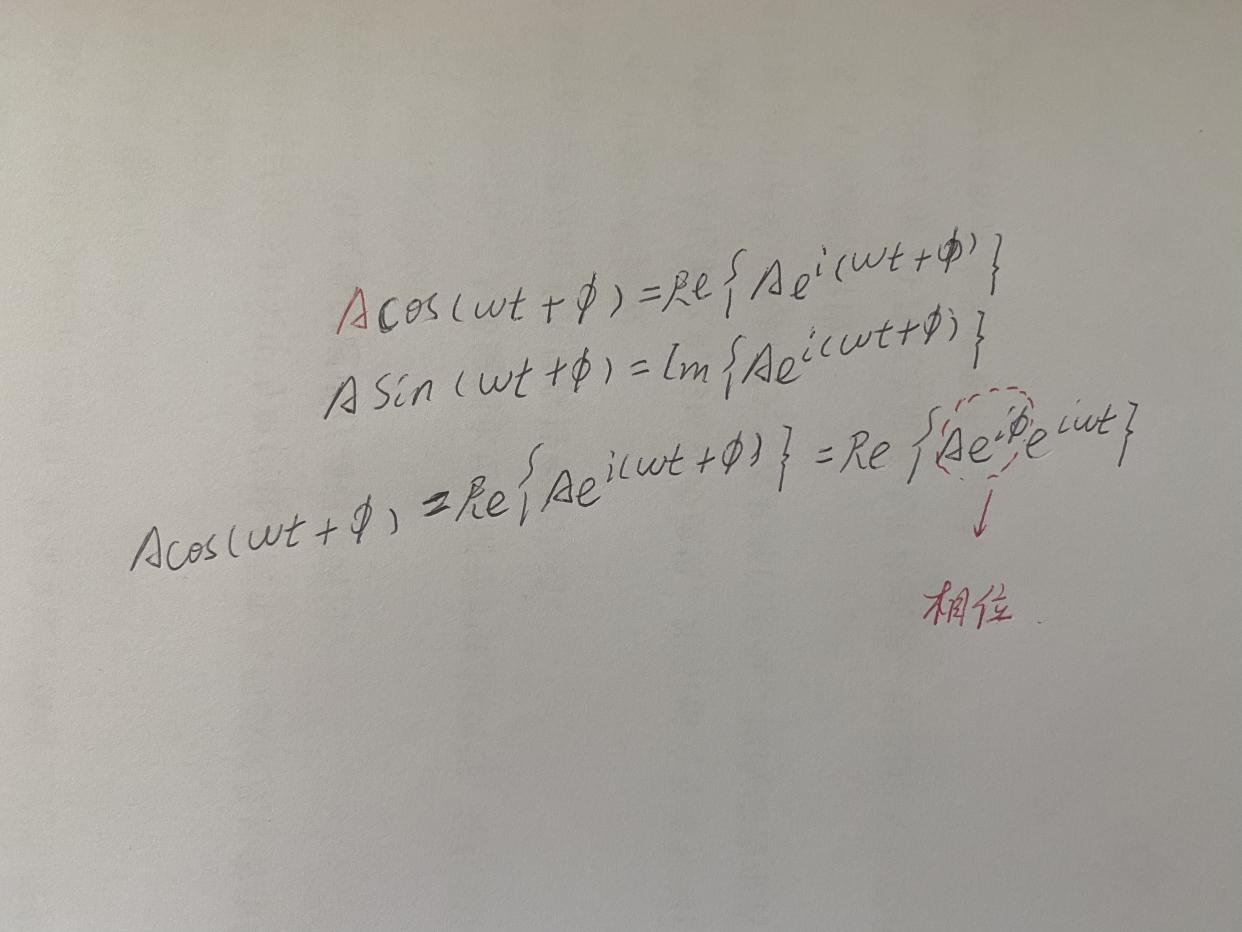 Acos(ωt+ϕ)=Re{Ae^{i(ωt+ϕ)}}
Asin(ωt+ϕ)=Im{Ae^{i(ωt+ϕ)}}
Acos(ωt+ϕ)=Re{Ae^{i(ωt+ϕ)}}=Re{Ae^{iϕ}e^{iωt}}
相位.